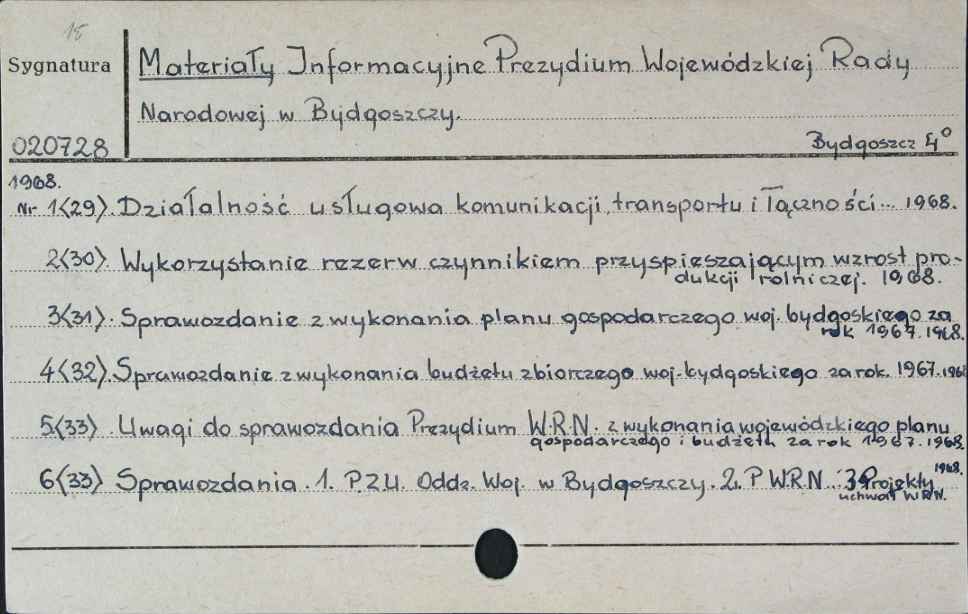 15
Sygnatura Materiały Informacyjne Prezydium Wojewódzkiej Rady
Narodowej w Bydgoszczy.
020728 Bydgoszcz 4°
1968.
Nr 1<29>. Działalność usługowa komunikacji, transportu i łączności... 1968.
2<30>. Wykorzystanie rezerw czynnikiem przyspieszającym wzrost pro-
dukcji rolniczej. 1968.
3<31>. Sprawozdanie z wykonania planu gospodarczego woj. bydgoskiego za
rok 1967. 1968.
4<32>. Sprawozdanie z wykonania budżetu zbiorczego woj. bydgoskiego za rok 1967. 1968
5<33>. Uwagi do sprawozdania Prezydium W.R.N. z wykonania wojewódzkiego planu
gospodarczego i budżetu za rok 1967. 1968.
6<33> Sprawozdania. 1. P.Z.U. Oddz. Woj. w Bydgoszczy. 2. P.W.R.N. 3 Projekty
uchwał W.R.N. 1968.